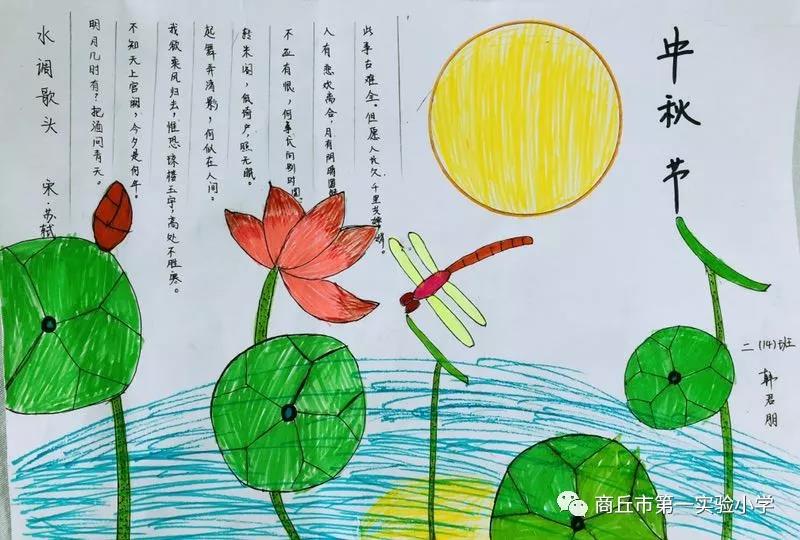 中秋节
水调歌头 宋·苏轼
明月几时有？把酒问青天。
不知天上宫阙，今夕是何年。
我欲乘风归去，惟恐琼楼玉宇，高处不胜寒。
起舞弄清影，何似在人间。
转朱阁，低绮户，照无眠。
不应有恨，何事长向别时圆
人有悲欢离合，月有阴晴圆
此事古难全。但愿人长久，千里共婵娟。
二(14)班
韩君朋
商丘市第一实验小学